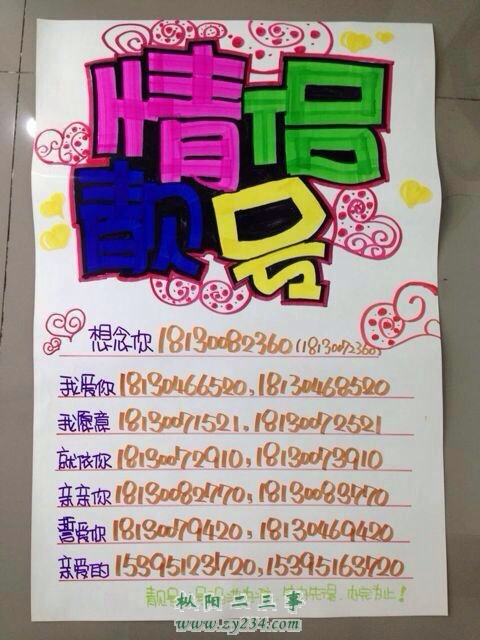 情侣
靓号
想念你 18130082360 (18130072360)
我爱你 18130466520, 18130468520
我愿意 18130071521, 18130072521
就依你 18130072910, 18130073910
亲亲你 18130082770, 18130083770
誓爱你 18130079420, 18130469420
亲爱的 15395123720, 15395163720
靓号
枞阳二三事
www.zy234.com